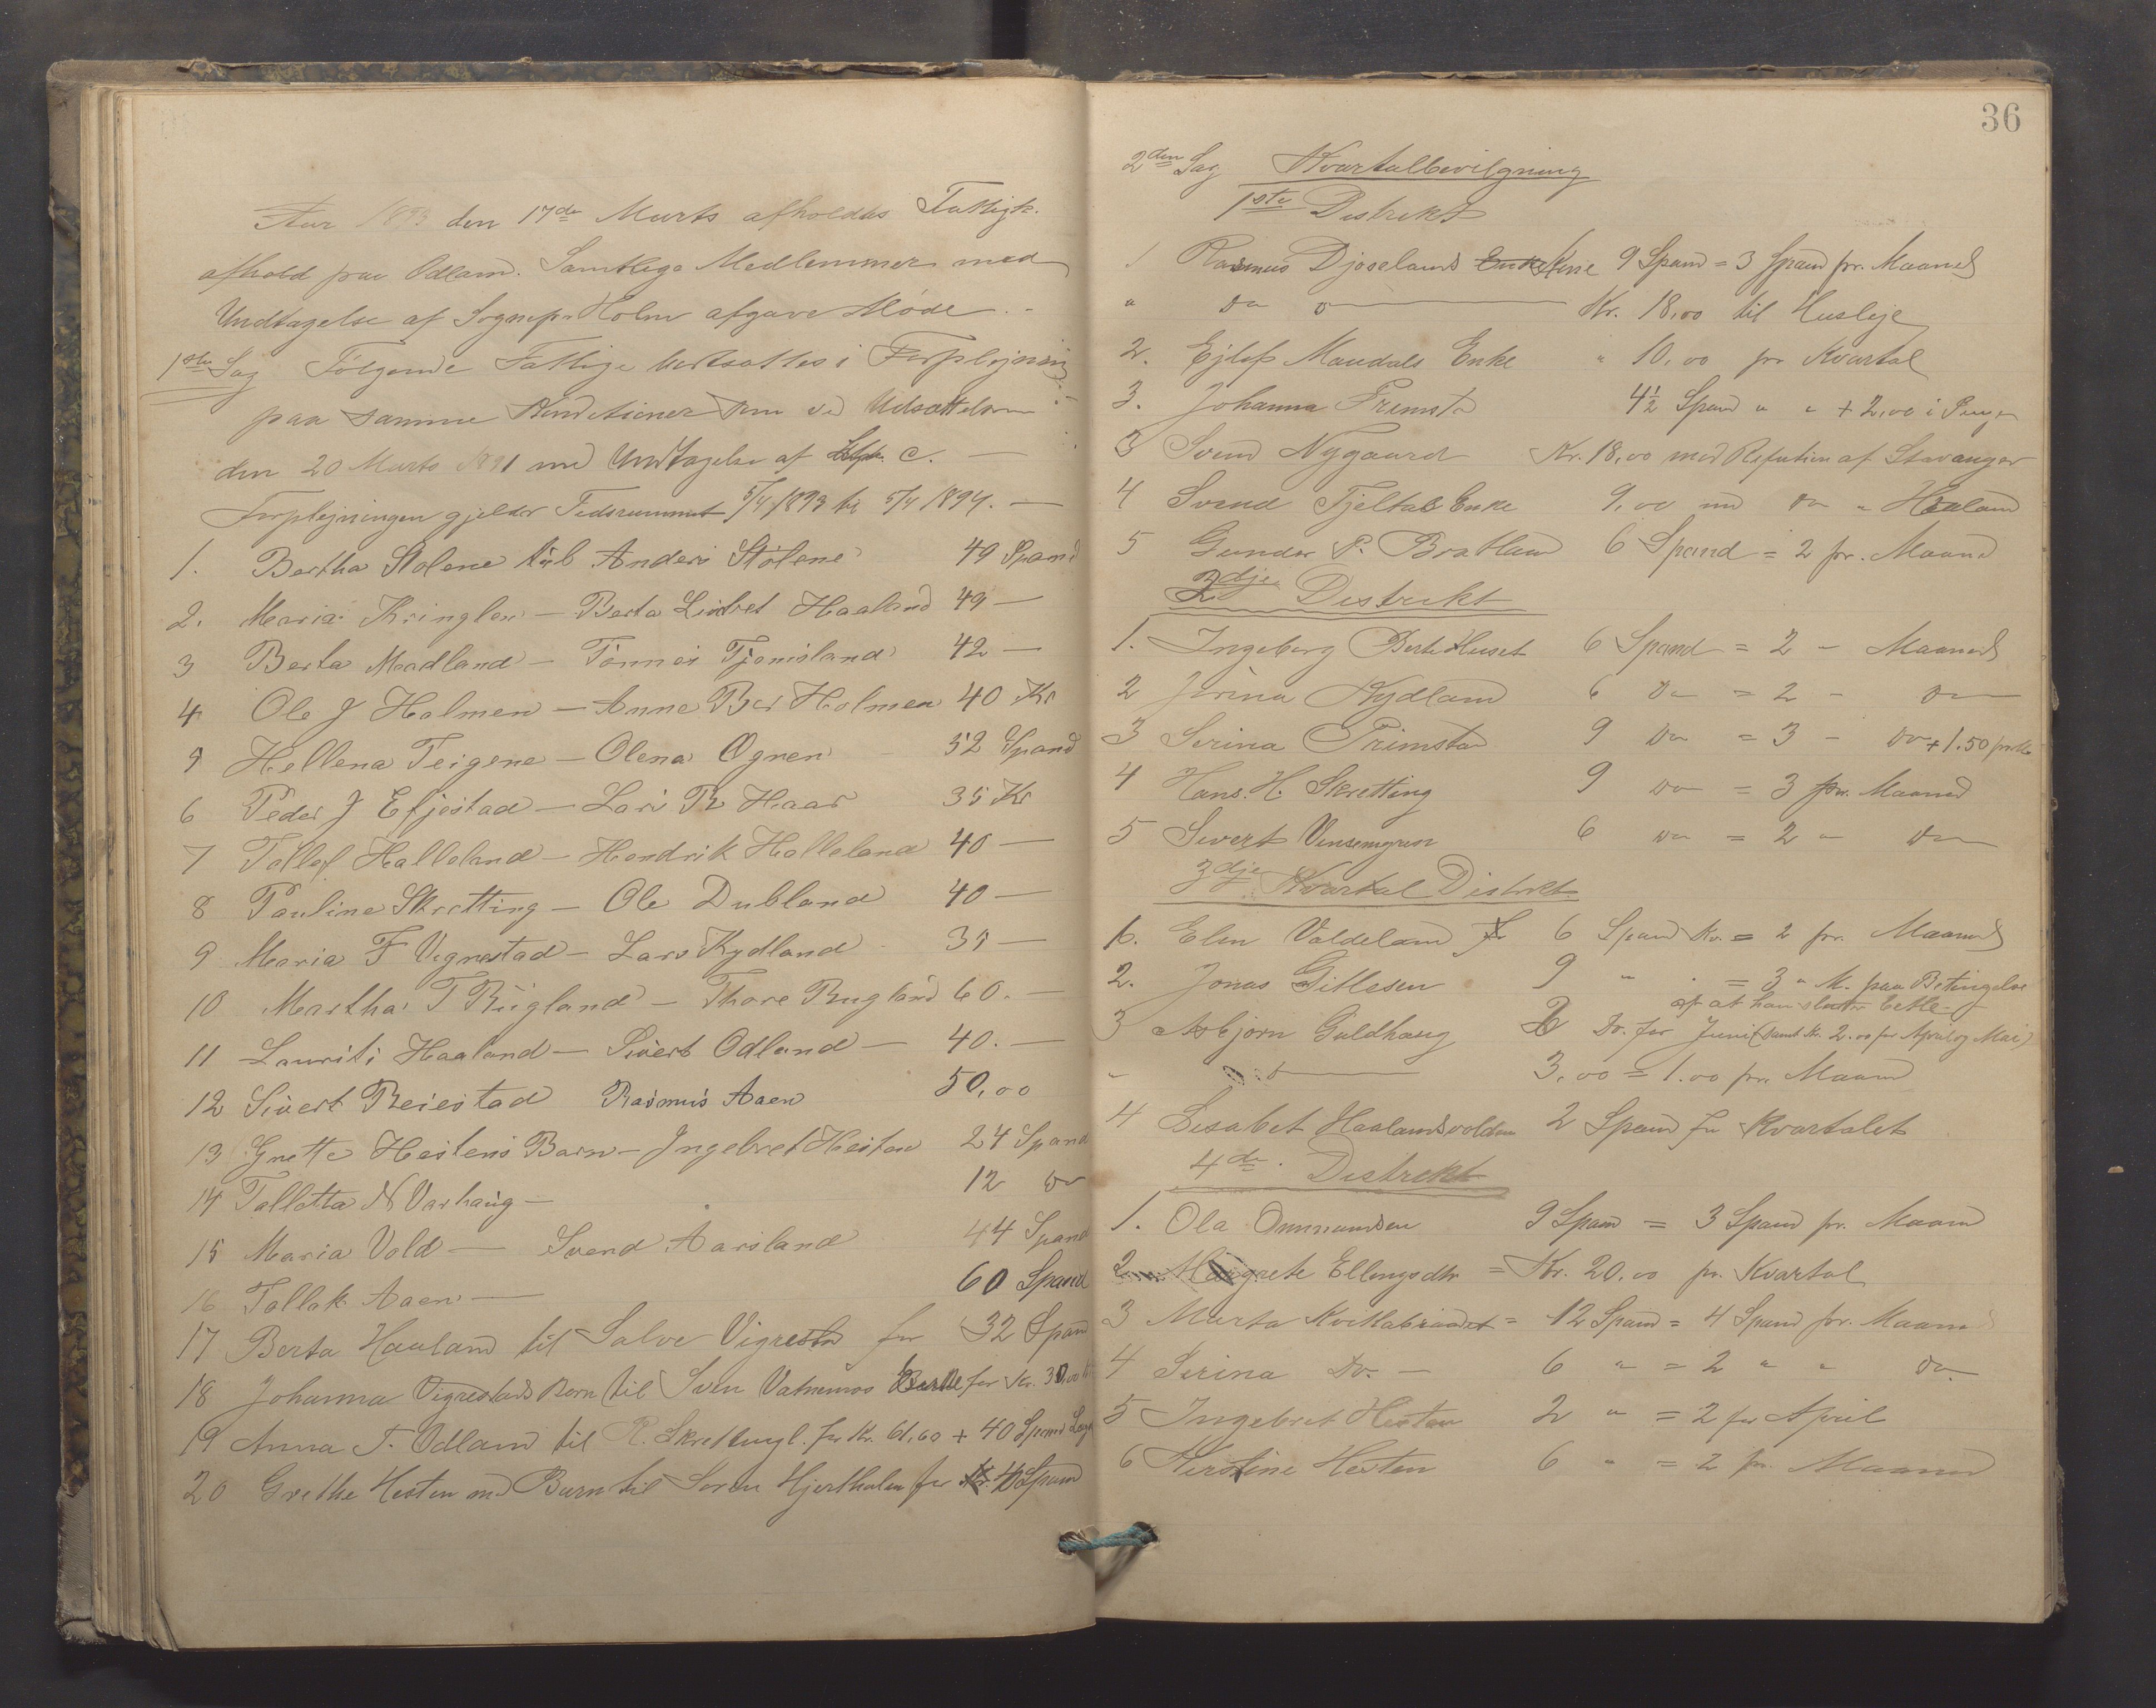 Aar 1893 den 17de Marts afholdtes Fattigk.
afhold paa Odland. Samtlige Medlemmer med
Undtagelse af Sognep. Holm afgave Møde. -
1ste Sag Følgende Fattige bortsattes i Forplejning
paa samme Konditioner som ved Udsættelsen
den 20 Marts 1891 med Undtagelse af c. —
Forplejningen gjelder Tidsrummet 5/4 1893 til 5/4 1894. —
1. Bertha Stolene til Anders Stölene 49 Spand
2. Maria Kringlen — Berta Lisbet Haaland 49 —
3 Berta Madland — Tönnes Tjemsland 42 —
4 Ole J Holmen — Anne Ber Holmen 40 Kr
5 Hellena Teigene — Olena Ognen 52 Spand
6 Peder J Efjestad — Lars R Haar 35 Kr
7 Tollef Halleland — Hendrik Holleland 40 —
8 Pauline Skretting — Ole Dubland 40 —
9 Maria F Vignestad — Lars Kydland 35 —
10 Martha T Rügland — Thore Rugland 60. —
11 Laurits Haaland — Sivert Odland — 40. —
12 Sivert Reiestad Rasmus Aaen 50,00
13 Grette Hestens Barn — Ingebret Hesten 24 Spand
14 Tollotta N Varhaug — 12 Do
15 Maria Vold — Svend Aarsland 44 Spand
16 Tollak Aaen — 60 Spand
17 Berta Haaland til Salve Vigrestad for 32 Spand
18 Johanna Vigrestads Barn til Sven Vatnemos for Kr. 30,00
19 Anna T. Odland til R. Skretting for Kr. 61,60 + 40 Spand
20 Grethe Hesten med Barn til Soren Hjertholm for 40 Spand
36
2den Sag Kvartalbevilgning
1ste Distrikt
1 Rasmus Djoselands Enke 9 Spand = 3 Spand pr. Maaned
" Do Do — Kr. 18,00 til Husleje
2. Ejlef Maudals Enke " 10,00 pr Kvartal
3. Johanna Primsta 4½ Spand " " + 2,00 i Penge
3 Svend Nygaard Kr. 18,00 med Refution af Stavanger
4 Svend Tjeltas Enke 9,00 med Do " Haaland
5 Gunder P. Bratland 6 Spand = 2 pr. Maaned
2dje Distrikt
1. Ingeborg Berte Huset 6 Spand = 2 - Maaned
2 Jorina Kydland 6 Do = 2 - Do
3 Serina Primstad 9 Do = 3 - Do + 1.50
4 Hans. H. Skretting 9 Do = 3 pr. Maaned
5 Sivert 6 Do = 2 - Do
3dje Kvartal Distrikt
1. Elen Valdeland 6 Spand = 2 pr. Maaned
2. Jonas Gitlesen 9 " = 3 " M. paa Betingelse
af at han
3 Asbjørn Guldhaug 2 Do. for Juni (samt Kr. 2.00 for April og Mai)
" Do — 3,00 = 1.00 pr. Maaned
4 Lisabet Haalandsvolden 2 Spand for Kvartalet
4de Distrikt
1. Ola Ommundsen 9 Spand = 3 Spand pr. Maaned
2 Margrete Ellingsdtr = Kr. 20,00 pr. Kvartal
3 Marta = 12 Spand = 4 Spand pr. Maaned
4 Serina Do. — 6 " = 2 " " Do.
5 Ingebret Hesten 2 " = 2 for April
6 Kirstine Hesten 6 " = 2 pr. Maaned